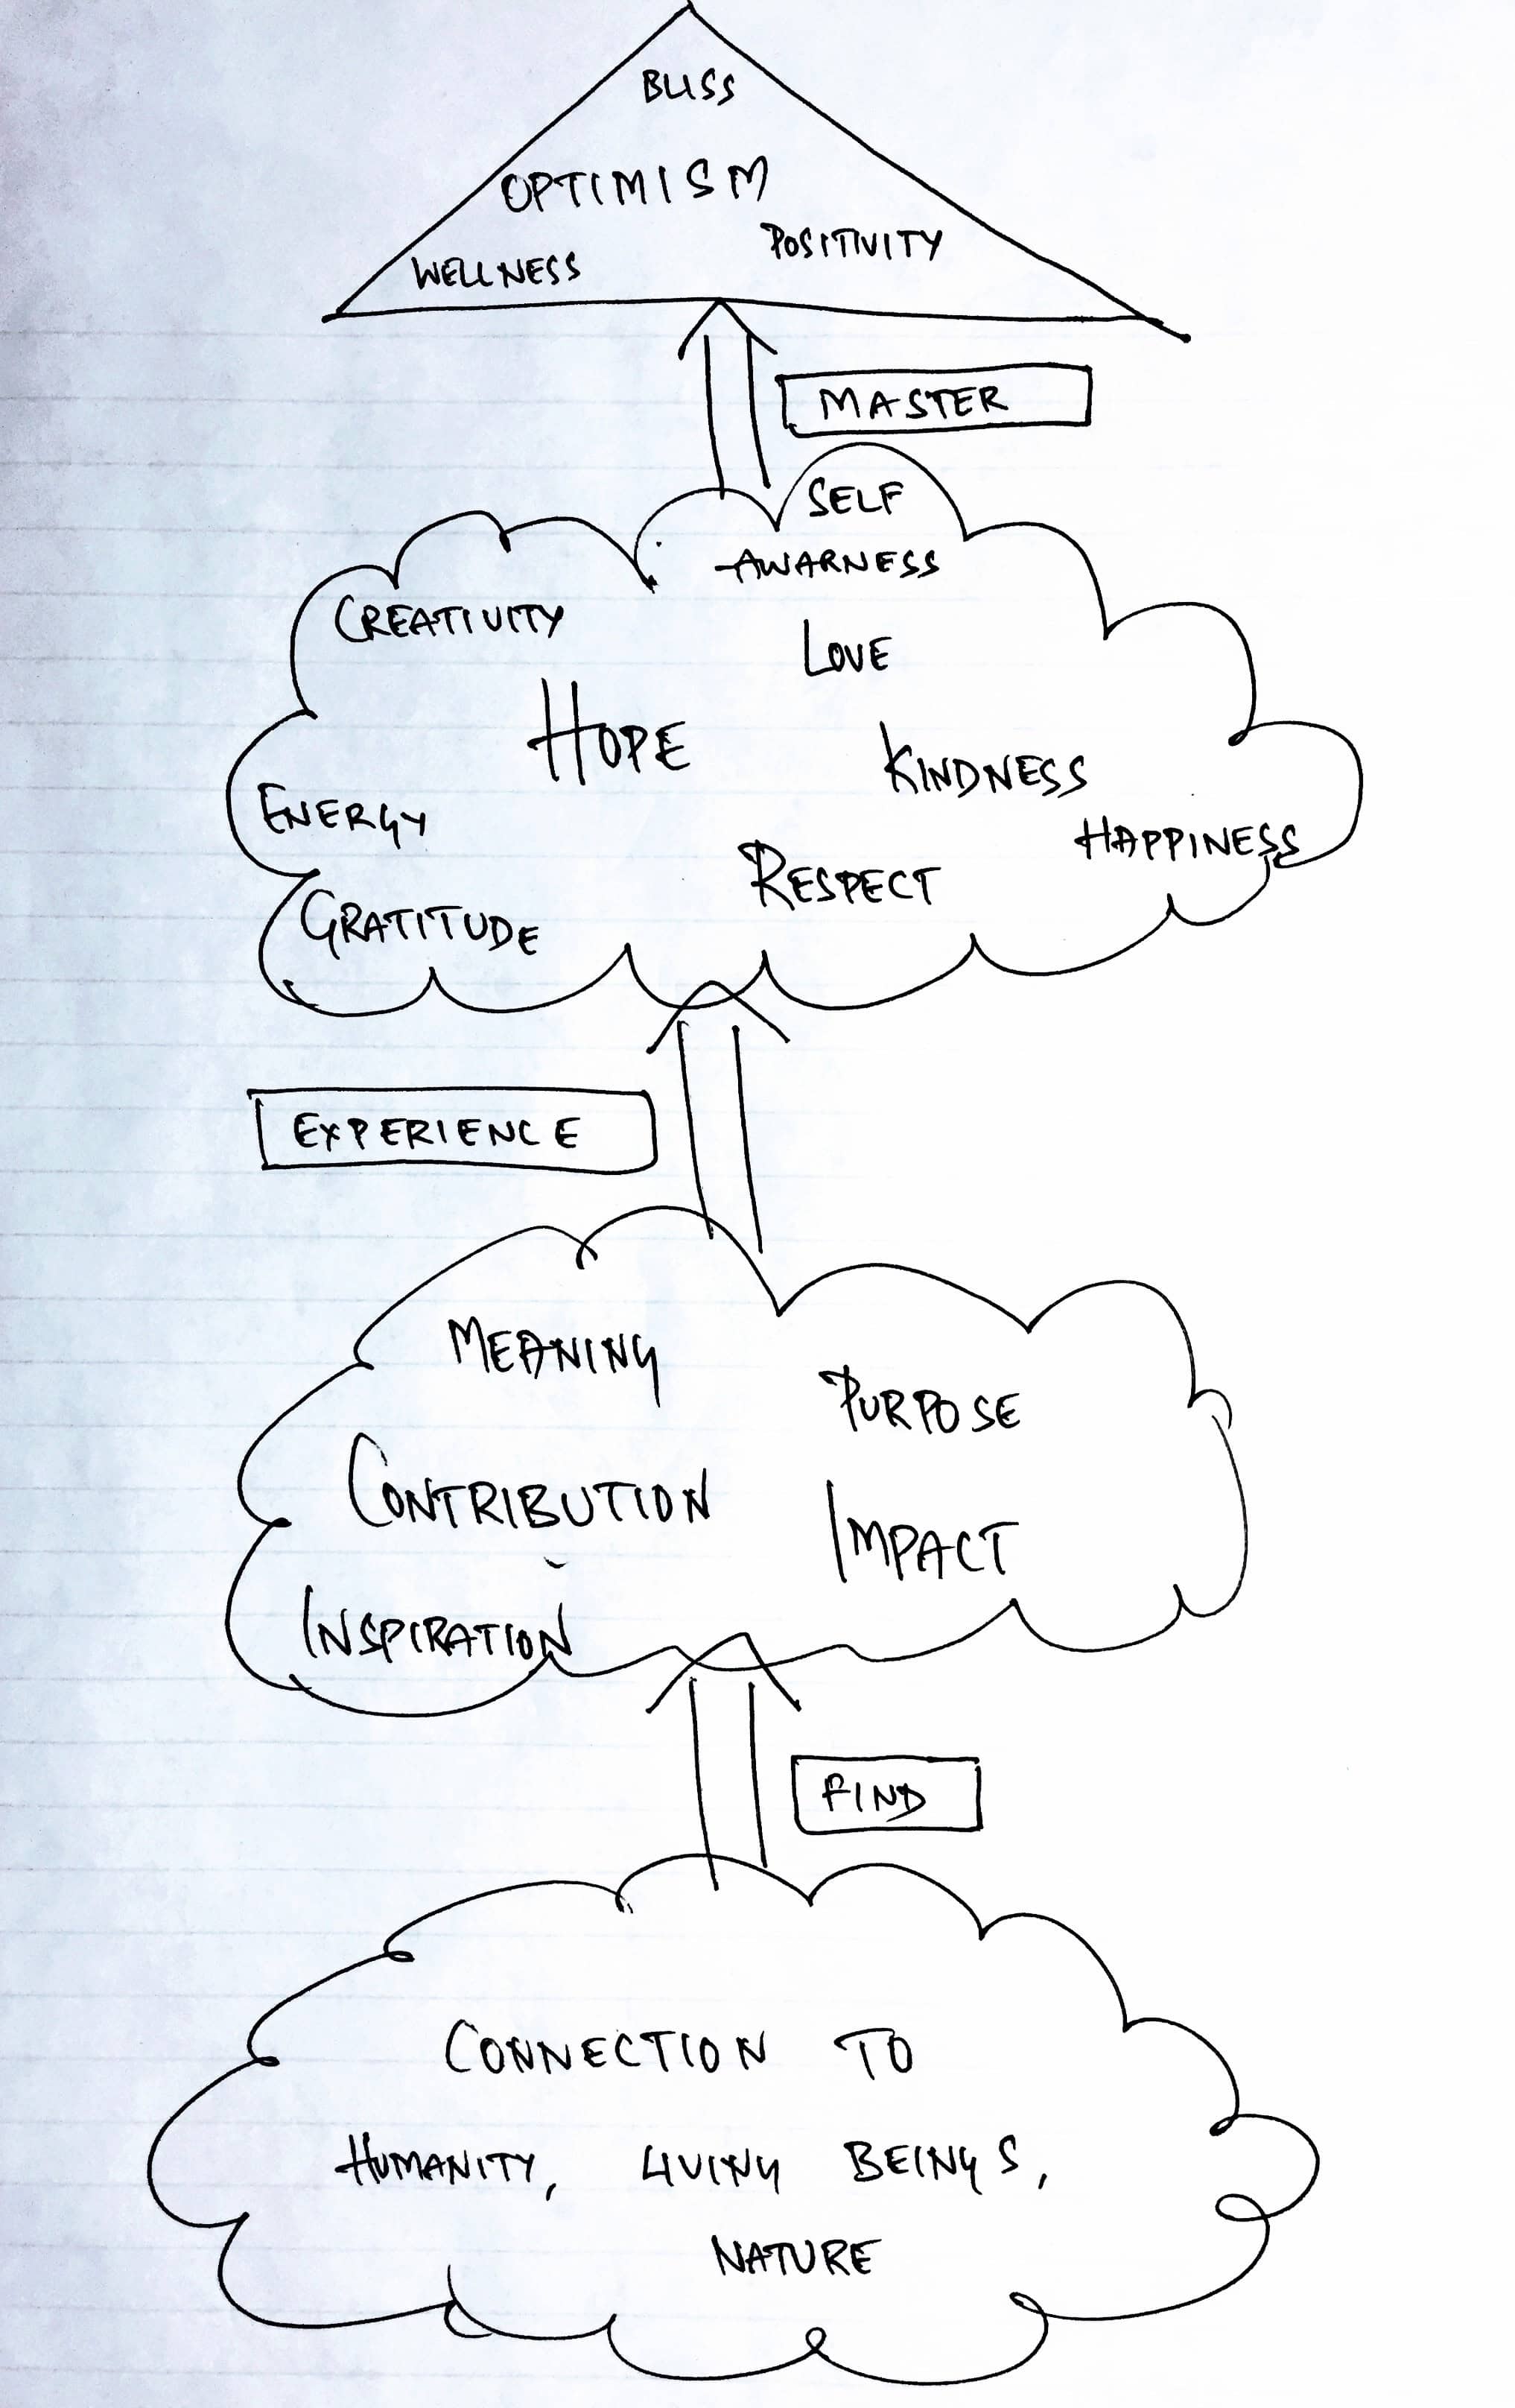 BLISS
OPTIMISM
POSITIVITY
WELLNESS
MASTER
SELF
AWARNESS
CREATIVITY
LOVE
HOPE
KINDNESS
ENERGY
HAPPINESS
RESPECT
GRATITUDE
EXPERIENCE
MEANING
PURPOSE
CONTRIBUTION
IMPACT
INSPIRATION
FIND
CONNECTION TO
HUMANITY, LIVING BEINGS,
NATURE